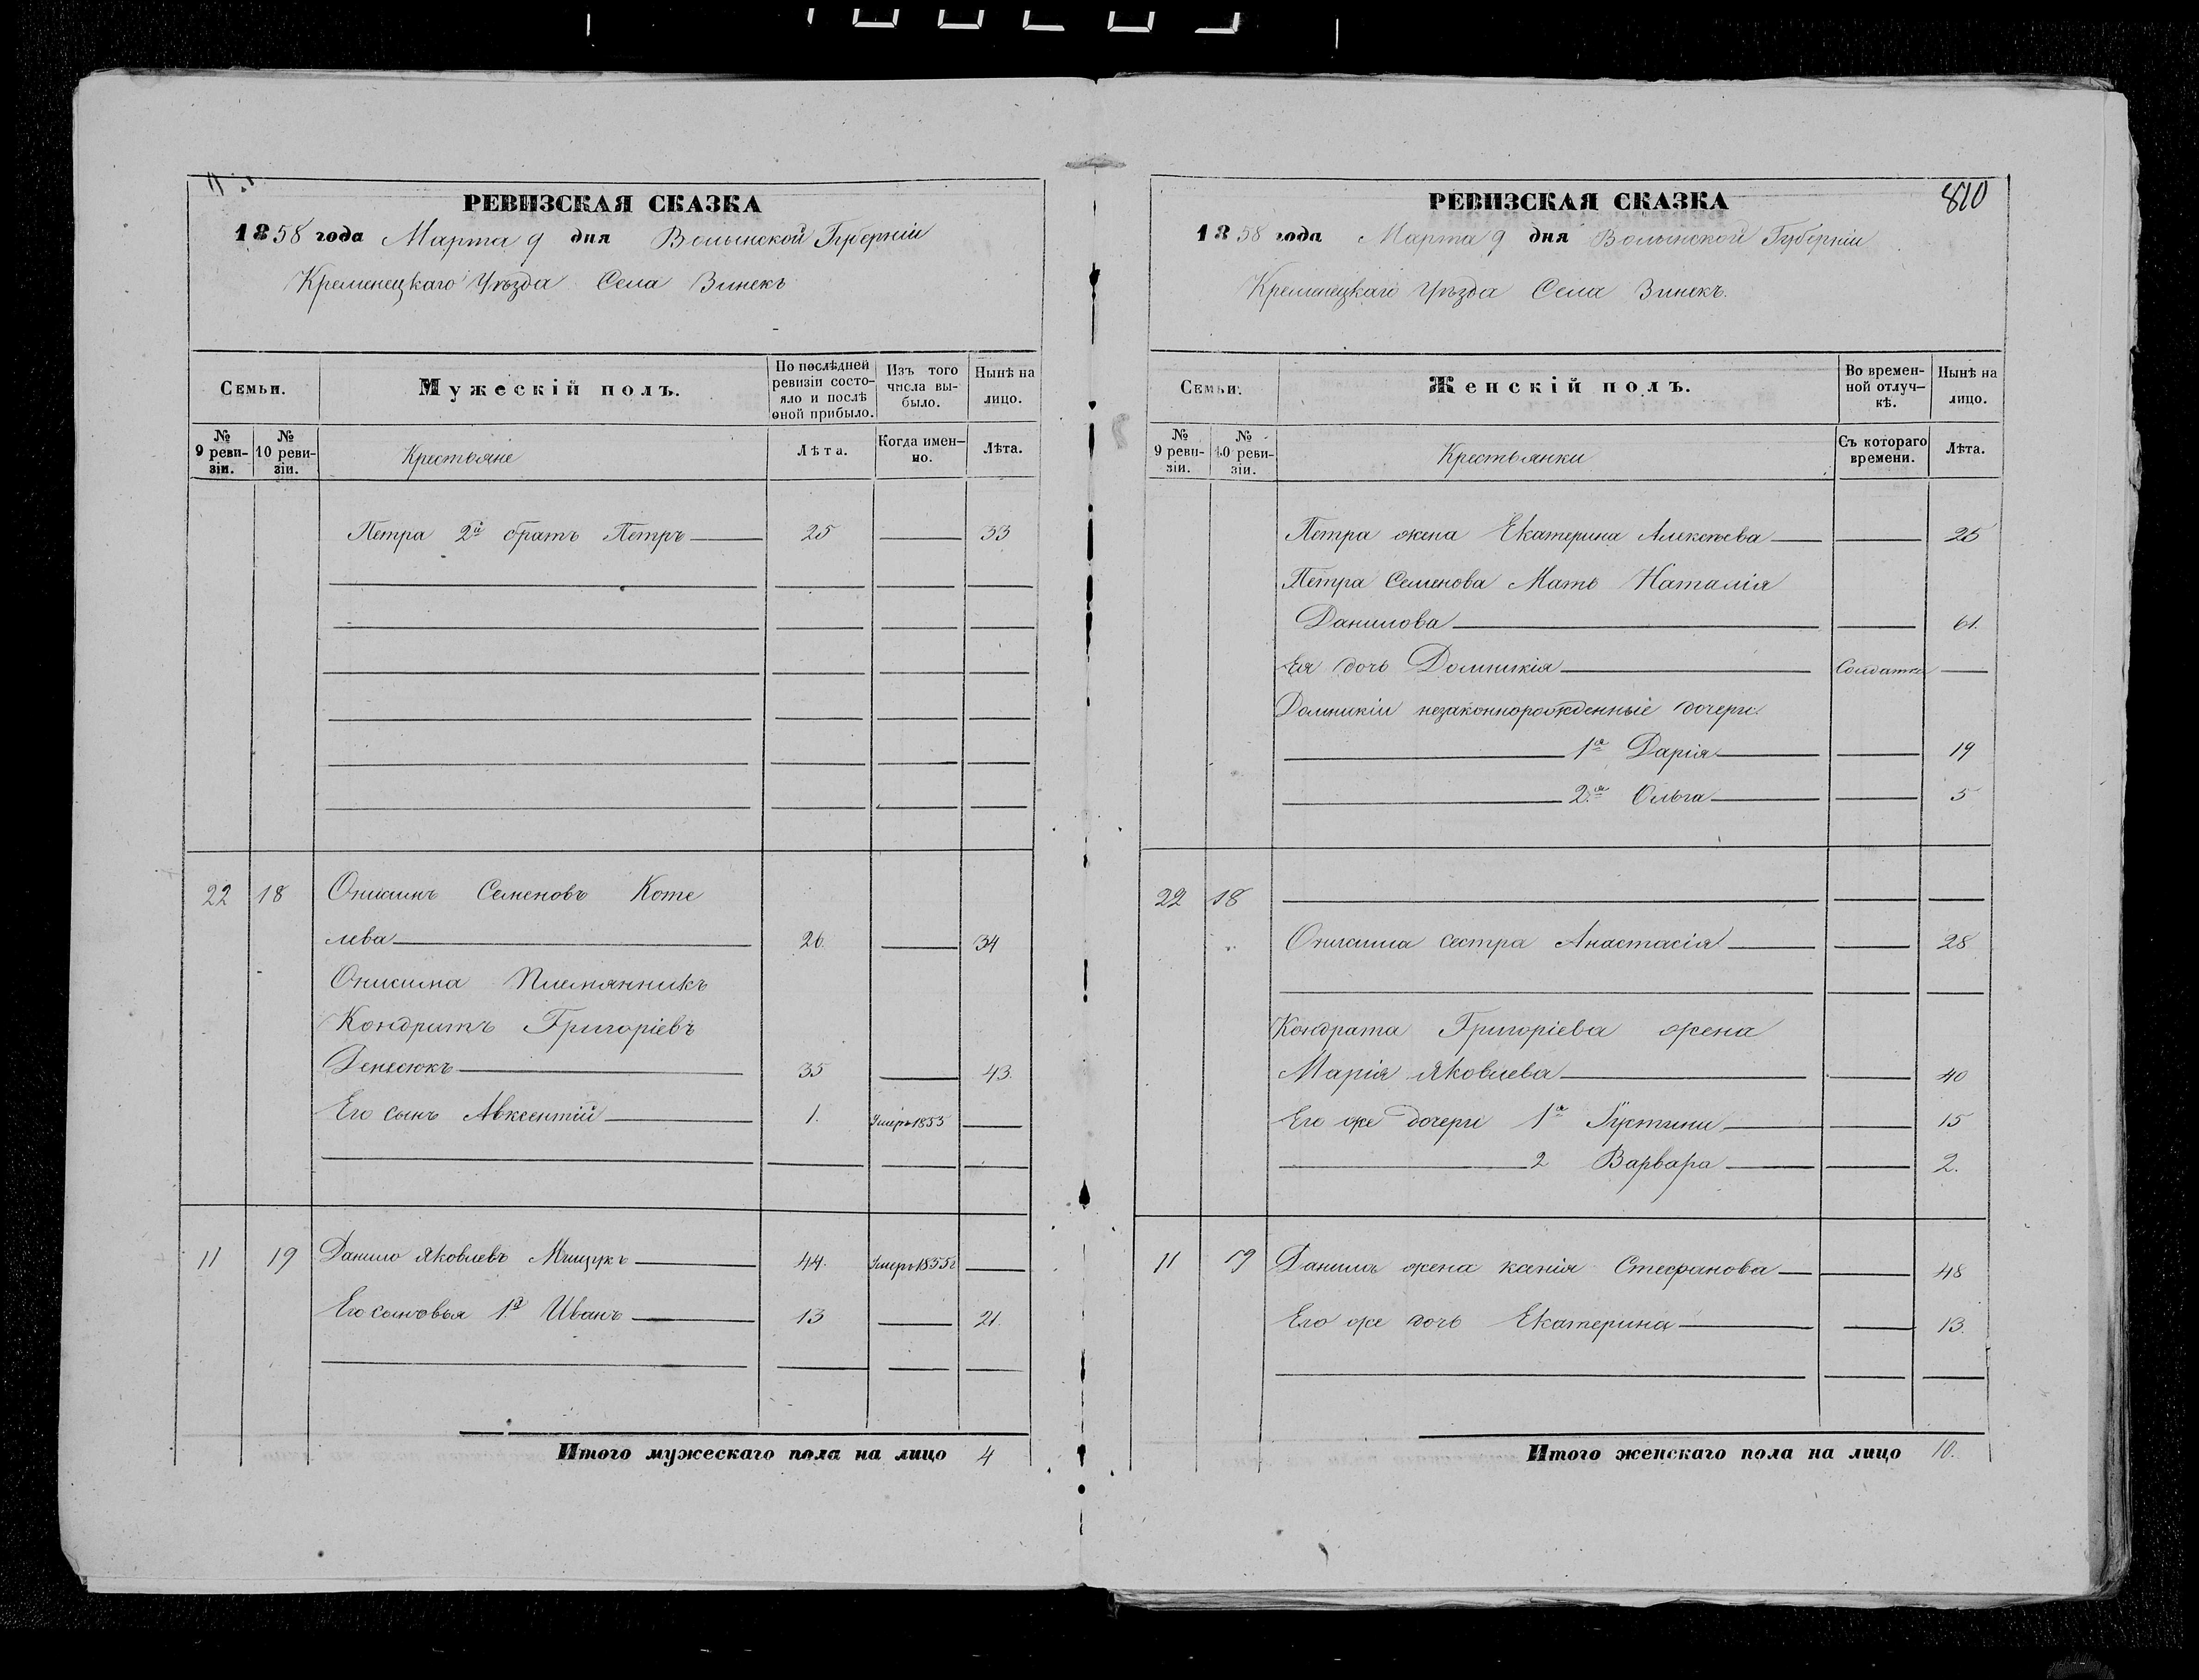 РЕВИЗСКАЯ СКАЗКА
1858 года Марта 9 дня Волынской Губерніи
Кременецкаго Уѣзда Села Винекъ
Семьи.
Мужескій полъ.
По послѣдней ревизіи состояло и послѣ оной прибыло.
Изъ того числа выбыло.
Нынѣ на лицо.
№ 9 ревизіи.
№ 10 ревизіи.
Крестьяне
Лѣта.
Когда именно.
Лѣта.
Петра 2й братъ Петръ 25 33
22 18 Онисимъ Семеновъ Коте
лева 26. 34
Онисима Племянникъ
Кондратъ Григоріевъ
Денесюкъ 35 43.
Его сынъ Авксентій 1. Умеръ 1853
11 19 Данило Яковлевъ Мищукъ 44. Умеръ 1855г
Его сыновья 1й Иванъ 13 21.
Итого мужескаго пола на лицо 4
810
РЕВИЗСКАЯ СКАЗКА
1858 года Марта 9 дня Волынской Губерніи
Кременецкаго Уѣзда Села Винекъ.
Семьи.
Женскій полъ.
Во временной отлучкѣ.
Нынѣ на лицо.
№ 9 ревизіи.
№ 10 ревизіи.
Крестьянки
Съ котораго времени.
Лѣта.
Петра жена Екатерина Алексѣева 25
Петра Семенова Мать Наталія
Данилова 61.
Ея дочь Домникія Солдатка
Домникіи незаконнорожденные дочери.
1я Дарія 19
2я Ольга 5
22 18
Онисима сестра Анастасія 28
Кондрата Григоріева жена
Марія Яковлева 40
Его же дочери 1я 15
2 Варвара 2.
11 19 Данила жена Стефанова 48
Его же дочь Екатерина 13.
Итого женскаго пола на лицо 10.